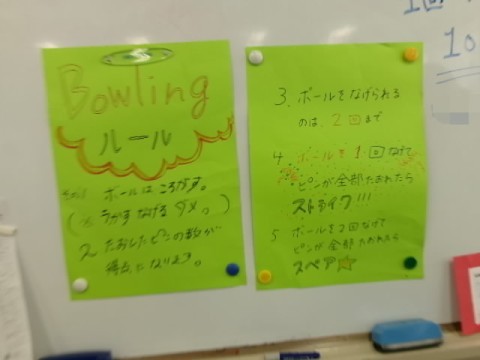 Bowling
ルール
ボールはころがす。
なげる ダメ
2. たおしたピンの数が
得点になります。
3. ボールをなげられる
のは、2回まで
4. ボールを1回なげて
ピンが全部たおれたら
ストライク!!!
5 ボールを2回なげて
ピンが全部たおれたら
スペア☆
1回
10